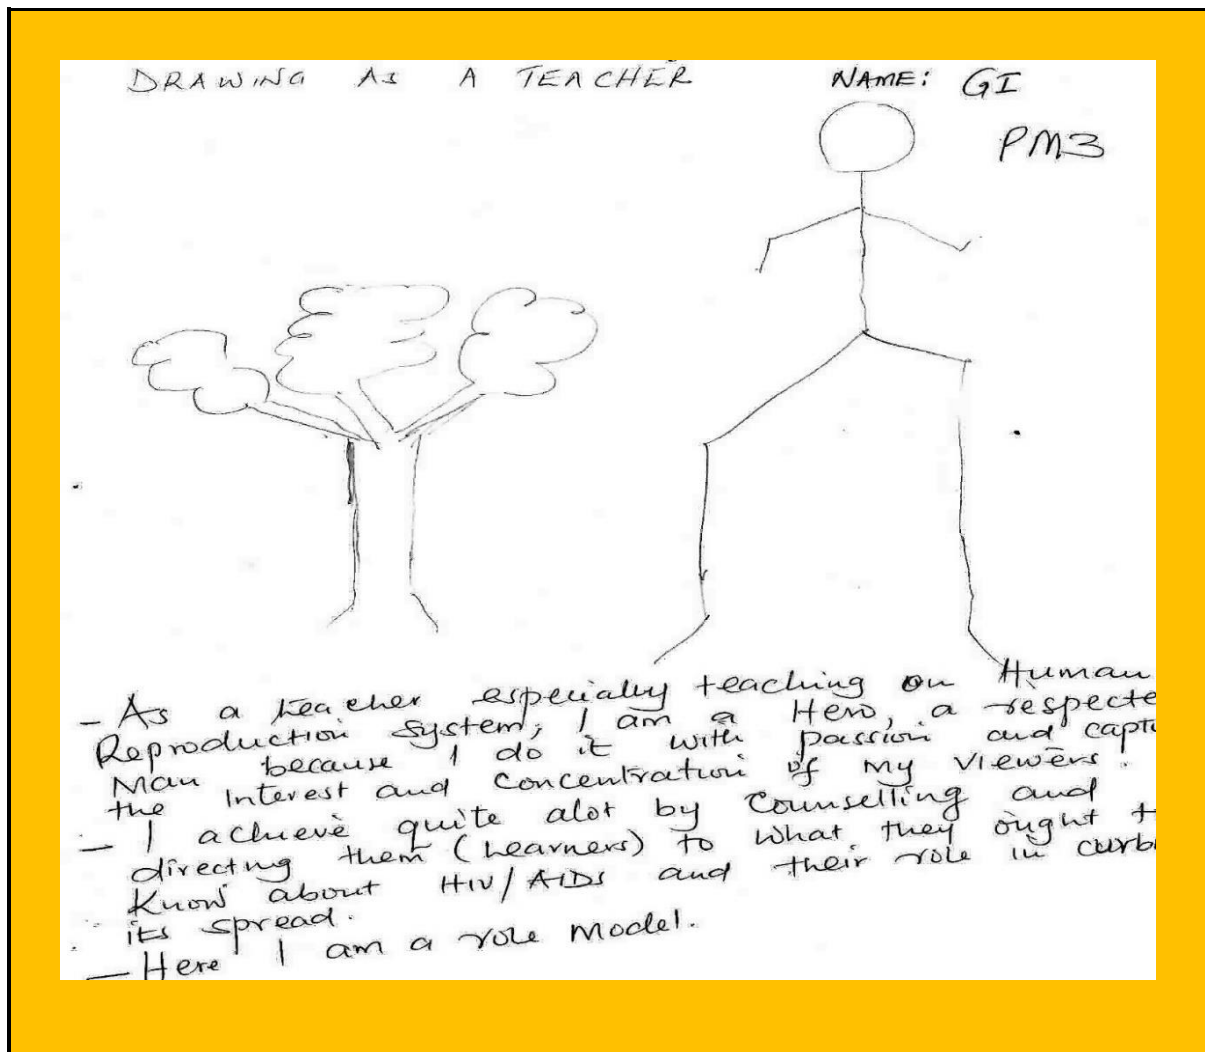 DRAWING AS A TEACHER NAME: GI
PM3
- As a teacher especially teaching on Human
Reproduction system, I am a Hero, a respecte
Man because I do it with passion and captu
the interest and concentration of my viewers.
- I achieve quite alot by counselling and
directing them (Learners) to what they ought t
know about HIV/AIDs and their role in curbi
its spread.
- Here I am a role model.